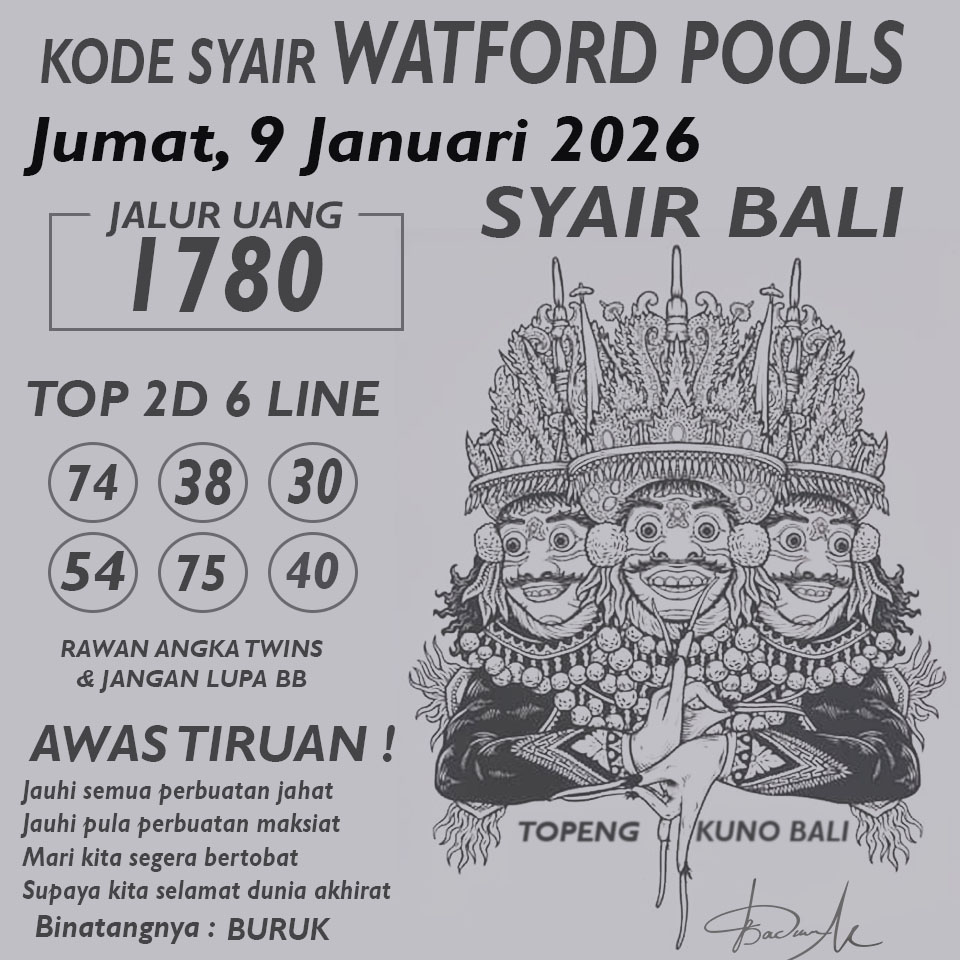 KODE SYAIR WATFORD POOLS
Jumat, 9 Januari 2026
SYAIR BALI
JALUR UANG
1780
TOP 2D 6 LINE
74 38 30
54 75 40
RAWAN ANGKA TWINS
& JANGAN LUPA BB
AWAS TIRUAN !
Jauhi semua perbuatan jahat
Jauhi pula perbuatan maksiat
Mari kita segera bertobat
Supaya kita selamat dunia akhirat
Binatangnya : BURUK
TOPENG KUNO BALI